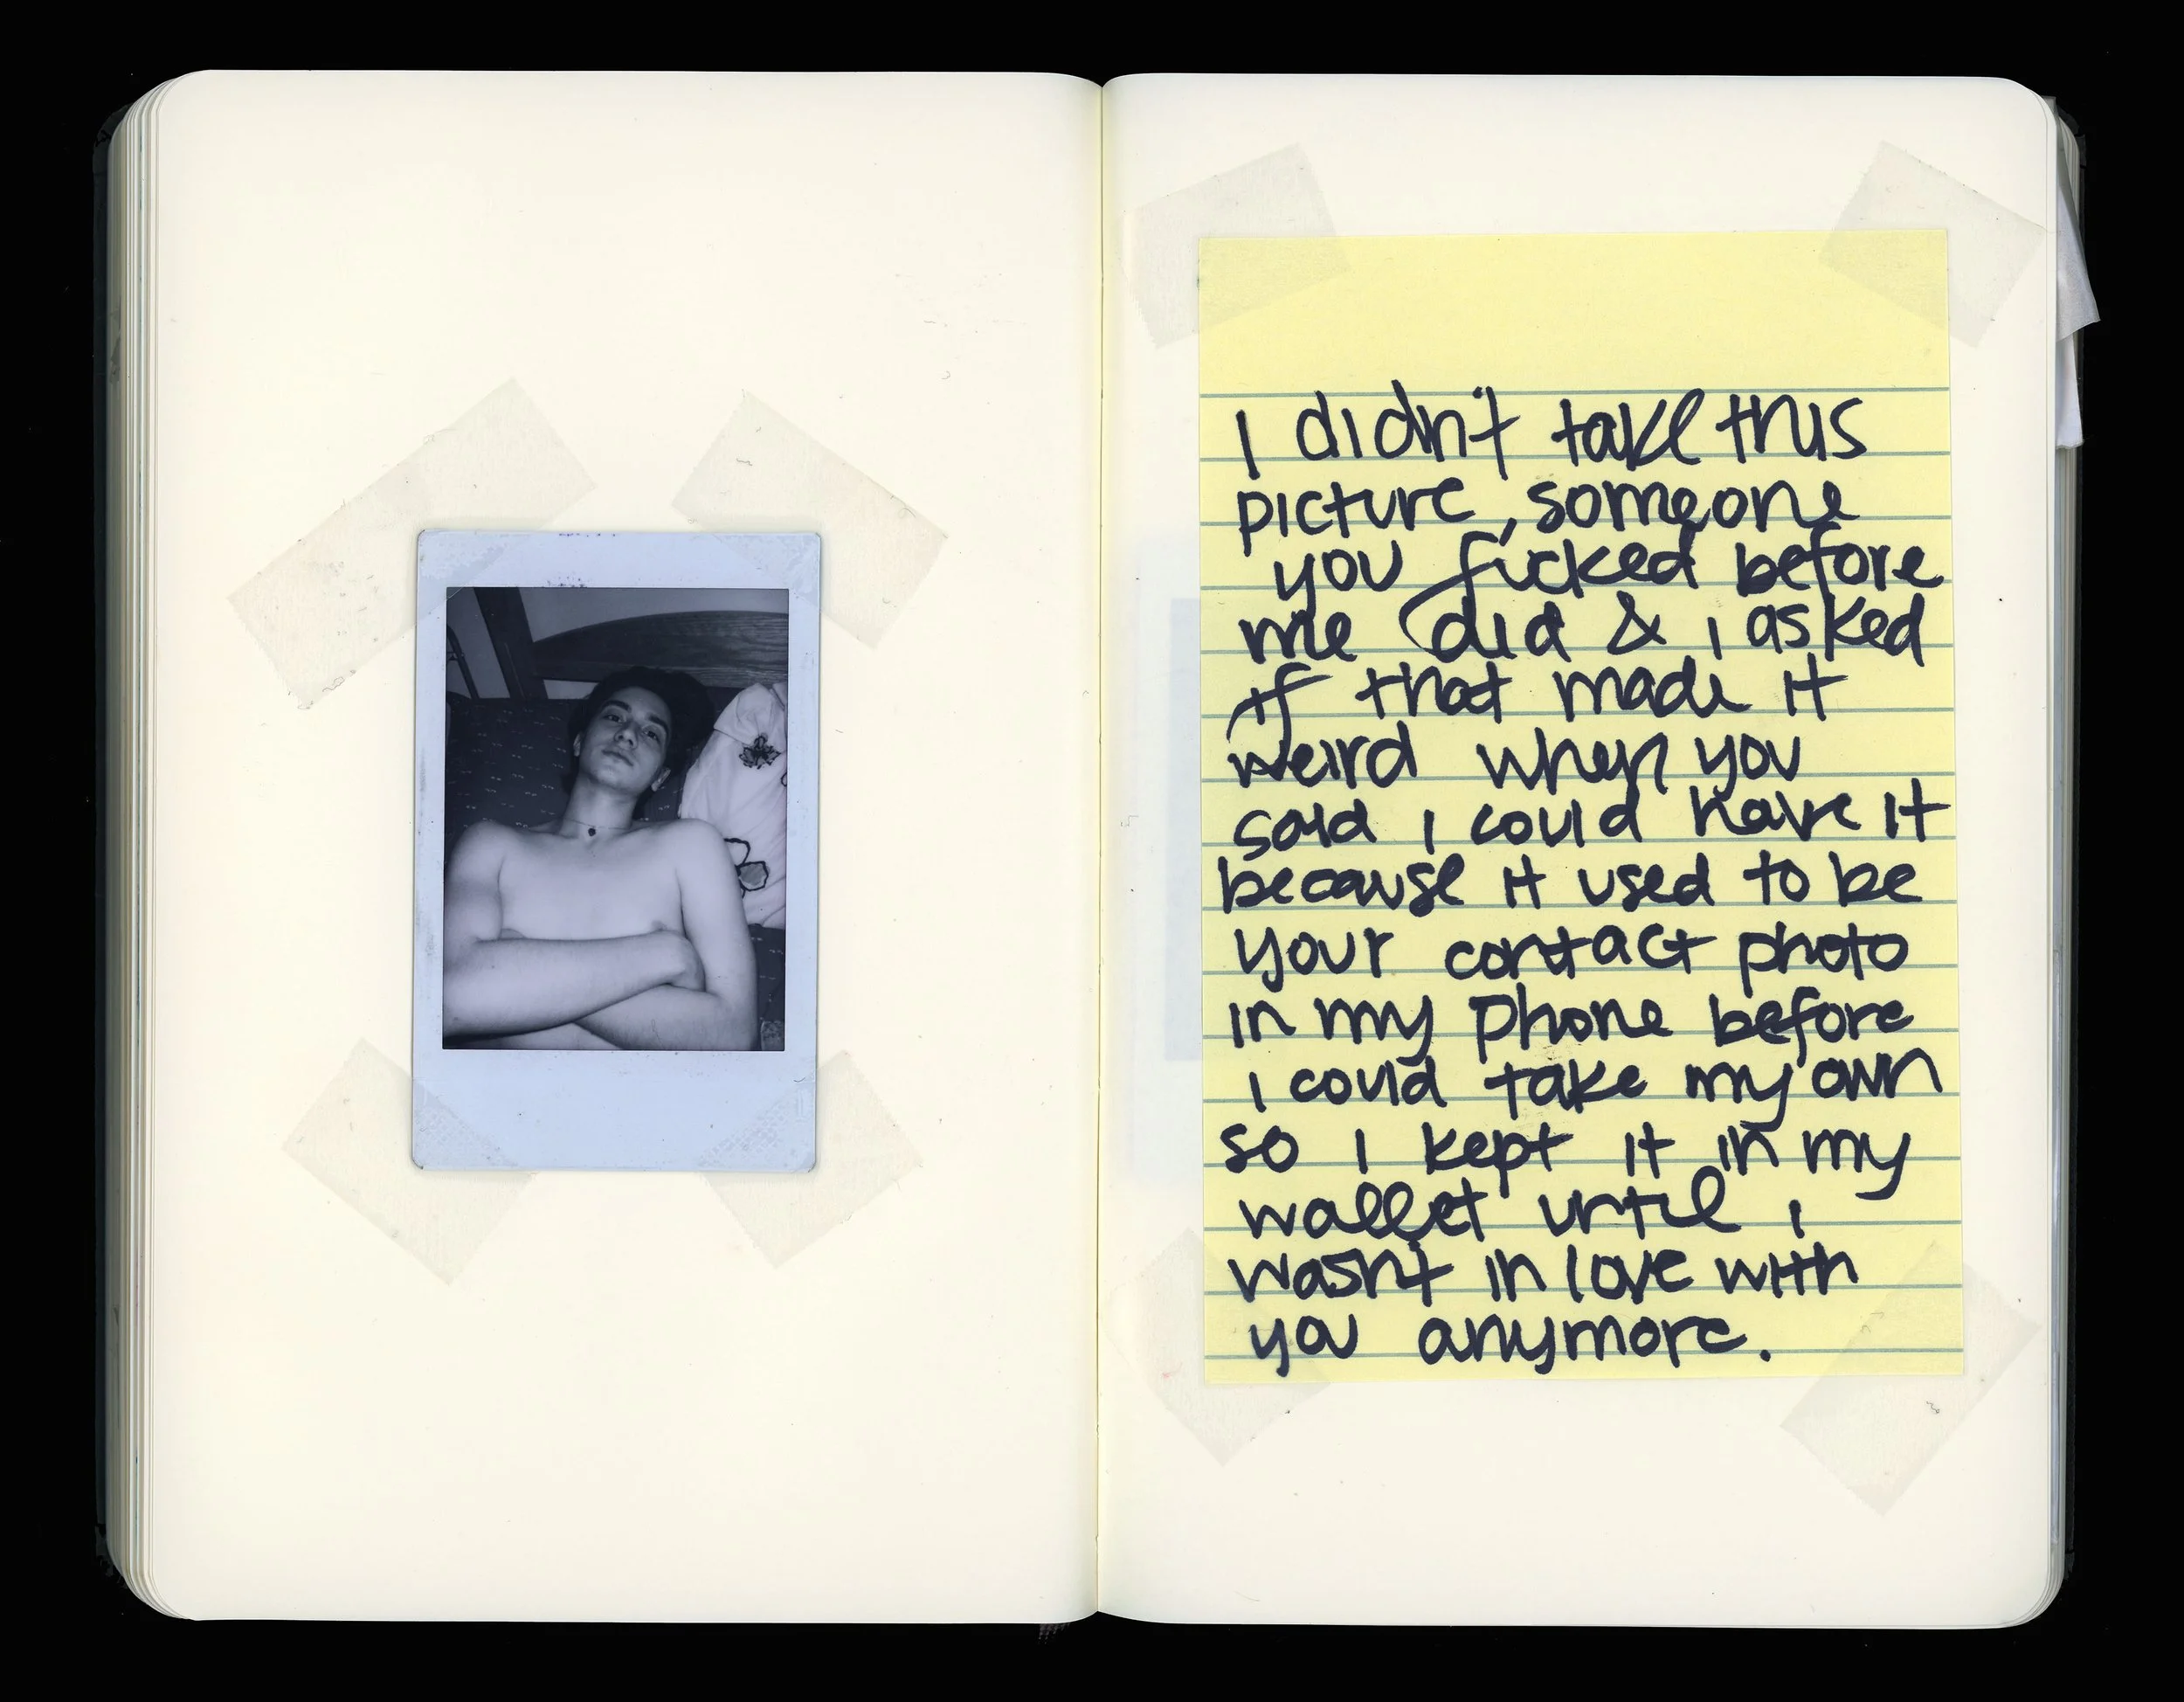 I didn't take this
picture, someone
you fucked before
me did & I asked
if that made it
weird when you
said I could have it
because it used to be
your contact photo
in my phone before
I could take my own
so I kept it in my
wallet until I
wasn't in love with
you anymore.